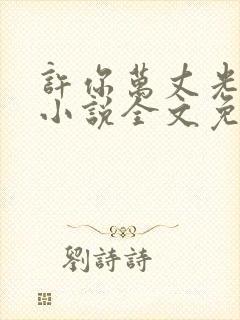 許你萬丈光
小說全文免
劉詩詩